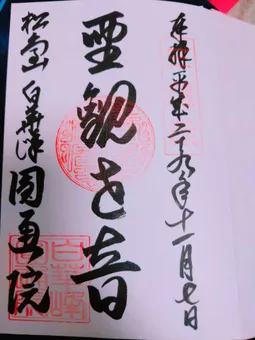 奉拝 平成二十九年十一月七日
聖観世音
松島 白華峰 圓通院
白華峰